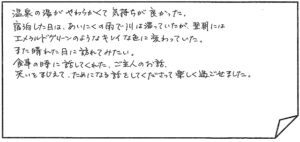 温泉の湯がやわらかくて気持ちが良かった。
宿泊した日は、あいにくの雨で川は濁っていたが、翌朝には
エメラルドグリーンのようなキレイな色に変わっていた。
また晴れた日に訪れてみたい。
食事の時に話してくれた、ご主人のお話、
笑いをまじえて、ためになる話をしてくださって楽しく過ごせました。